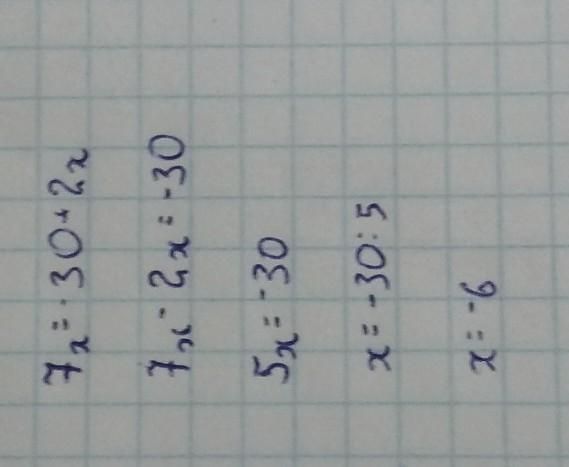 7x=-30+2x
7x-2x=-30
5x=-30
x=-30:5
x=-6